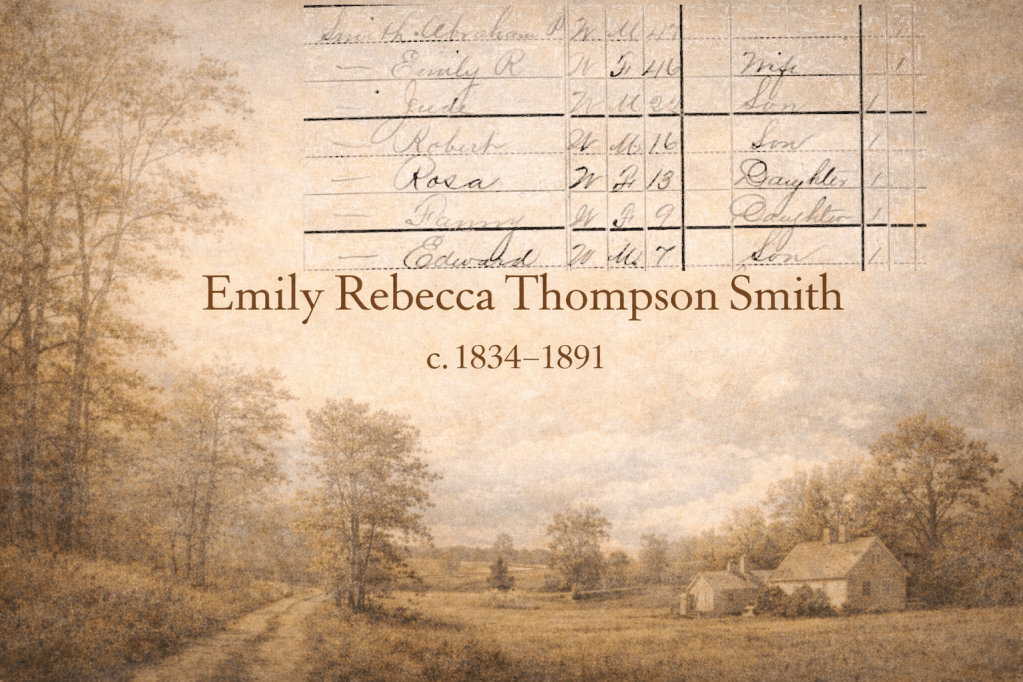 Smith Abraham P W M 47 1
— Emily R W F 46 Wife 1
— Jude W M Son 1
— Robert W M 16 Son 1
— Rosa W F 13 Daughter 1
— Fanny W F 9 Daughter 1
— Edward W M 7 Son 1
Emily Rebecca Thompson Smith
c. 1834–1891